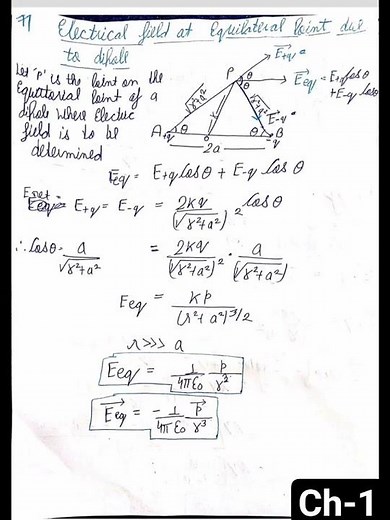 Electrical field at Equilateral Point due
to dipole
Let 'P' is the point on the
Equatorial Point of a
dipole where Electric
field is to be
determined
P θ θ
E⃗+q
E⃗eq = E+q cosθ
+E-q cosθ
√r²+a² r √r²+a² E-q
A +q θ O θ B -q
2a
Eeq = E+q cosθ + E-q cosθ
Enet = E+q = E-q = 2kq/(√r²+a²)² cosθ
∴ cosθ = a/√r²+a² = 2kq/(√r²+a²)² · a/(√r²+a²)
Eeq = kp/(r²+a²)^3/2
r >>> a
Eeq = 1/4πε0 p/r³
E⃗eq = -1/4πε0 p⃗/r³
Ch-1